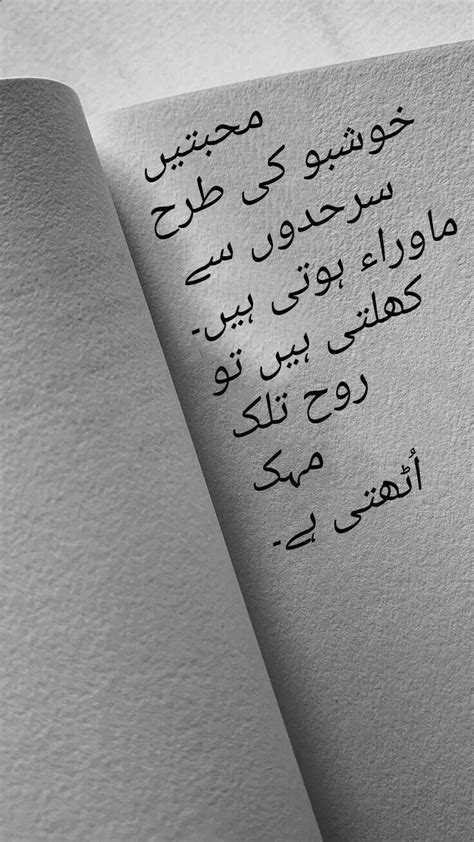 محبتیں
خوشبو کی طرح
سرحدوں سے
ماوراء ہوتی ہیں۔
کھلتی ہیں تو
روح تلک
مہک
اُٹھتی ہے۔